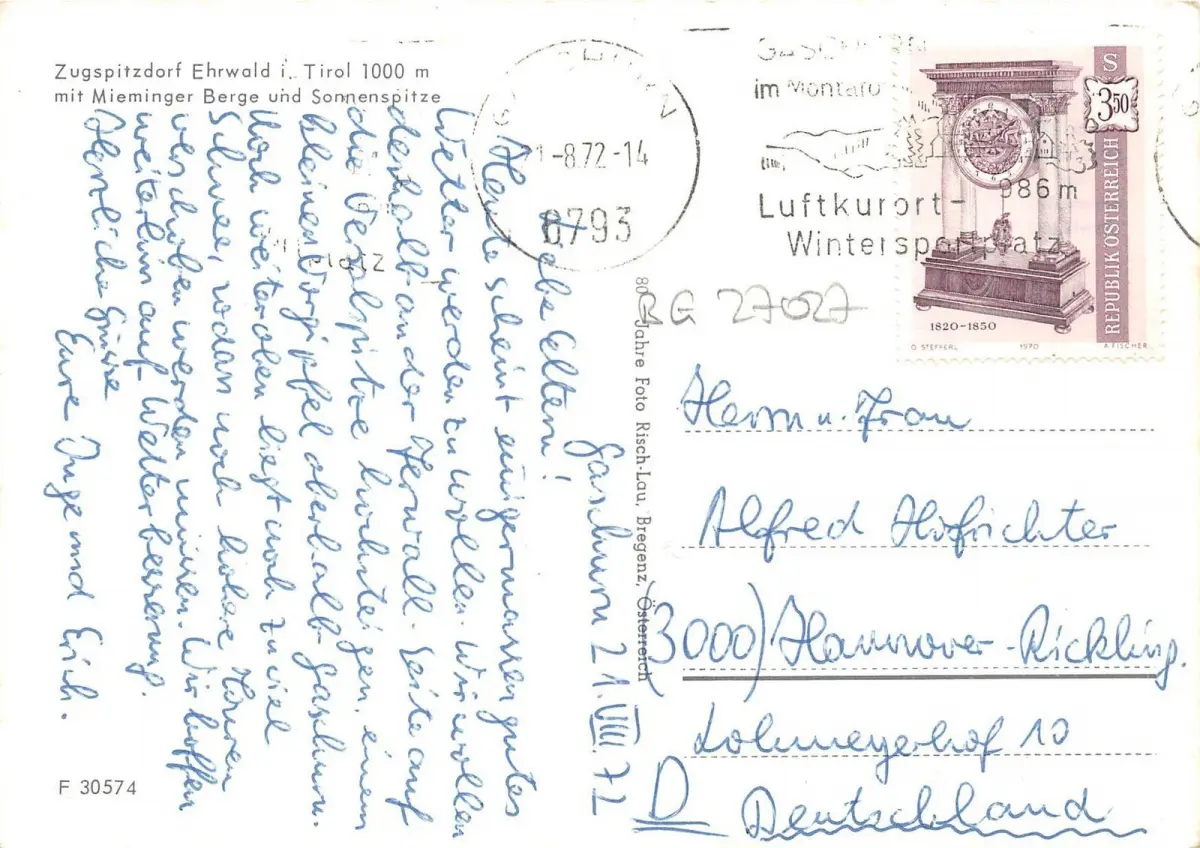 Zugspitzdorf Ehrwald i. Tirol 1000 m
mit Mieminger Berge und Sonnenspitze
Gaschurn 21.VIII.72
Liebe Eltern!
Heute scheint einigermassen gutes
Wetter werden zu wollen. Wir wollen
deshalb an der Ferwall-Seite auf
die Versalspitze hochsteigen, einem
kleinen Vorgipfel oberhalb Gaschurn.
Noch weiter oben liegt noch zu viel
Schnee, sodass noch höhere Touren
verschoben werden müssen. Wir hoffen
weiterhin auf Wetterbesserung.
Herzliche Grüsse
Eure Inge und Erich.
F 30574
80 Jahre Foto Risch-Lau, Bregenz, Österreich
1-8.72-14
6793
platz
im Montafo
986 m
Luftkurort-
Wintersportplatz
S
3 50
REPUBLIK ÖSTERREICH
1820-1850
O. STEFFERL 1970 A. FISCHER
BG 27027
Herrn u. Frau
Alfred Hisfrichter
(3000) Hannover-Rickling.
Lohmeyerhof 10
D Deutschland